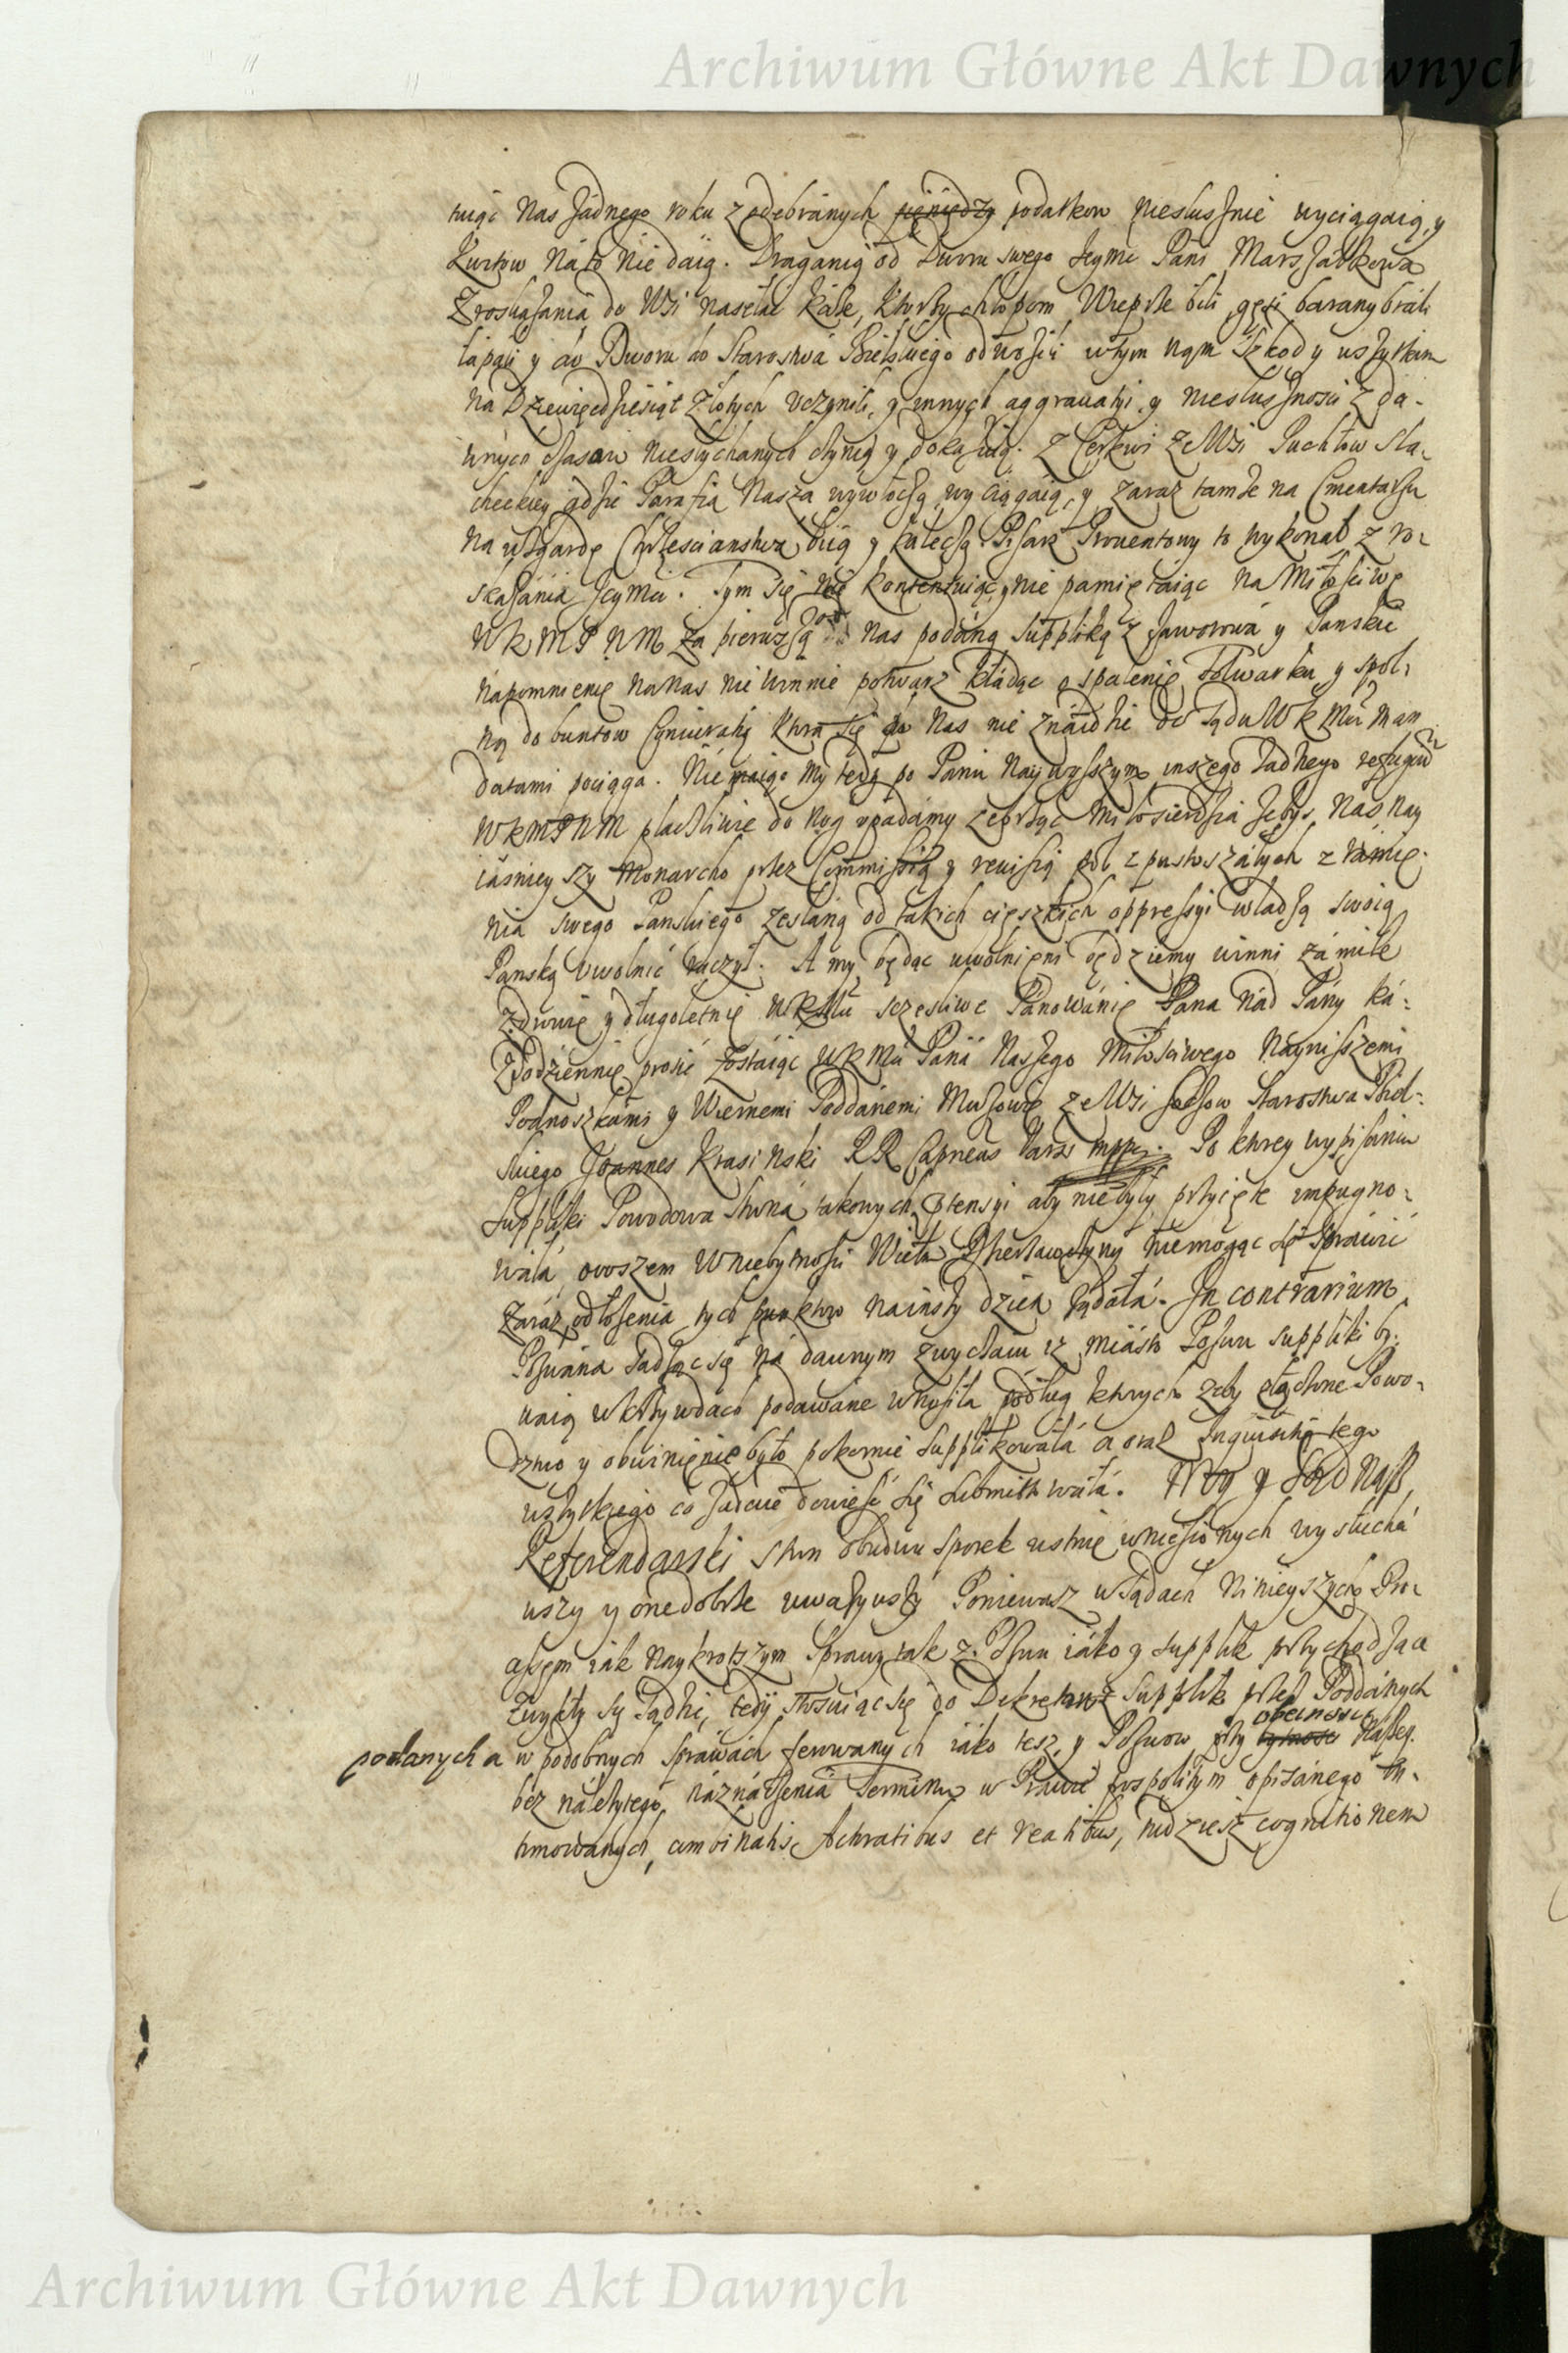 Archiwum Główne Akt Dawnych
tuiąc Nas żadnego roku z odebranych pieniędzy podatkow niesłusznie wyciągaią, y
Kwitow na to nie daią. Draganię od Dworu swego Jeymć Pani Marszałkowa
Z roskazania do Wsi nasełać każe, ktorzy chłopom Wieprze bili gęsi barany brali
łapali y do Dworu do Starostwa Bielskiego odnosili w tym nąm szkody wszytkim
na Dziewięcdziesiąt Złotych Uczynili, y innych aggrauatyi, y niesłusznosci z da-
wnych czasow niesłychanych czynią y dokazuią. Z Cerkwi ze Wsi Puchłow Sla-
checkiey gdzie Parafia Nasza wywłoczą, wyciągaią, y zaraz tamże na Cmentarzu
na wzgardę Chrzescianstwa biią y kaleczą. Pisarz Prouentowy to wykonał z ro-
skazania Jeymci. Tym się nie kontentuiąc, y nie pamiętaiąc na Miłosciwe
W K M P N M za pierwszą od nas podaną Suppliką z Jaworowa y Panskie
napomnienie na nas niewinnie potwarz kładąc o spalenie Folwarku y spol-
ną do buntow Coniuratię ktora się do Nas nie znaidzie do sądu W K Mci Man-
datami pociąga. Nie maiąc my tedy po Panu Naywyszszym inszego żadnego refugiu
W K M P N M płaczliwie do nog upadamy żebrząc miłosierdzia żebys nas Nay
iásnieyszy Monarcho przez Commissią y reuisią pol spustoszałych z ramie-
nia swego Panskiego zesłaną od takich cięszkich oppressyi władzą swoią
Panską Uwolnić raczył. A my będąc uwolnieni będziemy winni za miłe
Zdrowie y długoletnie W K Mci sczęsliwe Panowanie Pana nad Pány ká-
żdodziennie prosić zostaiąc W K Mci Pana Naszego Miłosciwego Nayniższemi
Podnoszkami y Wiernemi Poddanemi Mężowie ze Wsi Socow Starostwa Biel-
skiego Joannes Krasinski RR Capneus Vars mppr. Po ktorey wypisaniu
Suppliki Powodowa Strona takowych ptensyi aby nie były przyięte impugno-
wała, owszem w niebytnosci Wielm Dzierżawczyny niemogąc się sprawić
zaraz odłożenia tych punktow na inszy dzien żądała. In contrarium
Pozwana sadząc się na dawnym zwyczaiu iz miasto Pozwu suppliki by-
waią w krzywdach podawane wnosiła podług ktorych żeby
dztwo y obwinienie było pokornie Supplikowała a oraz Inquisitią tego
wszytkiego co zadaie dowiesć się submittowała. My y Sąd Nasz
Referendarski stron obudwu sporek ustnie wniesionych wysłucha-
wszy y one dobrze uwazywszy Poniewasz w Sądach Ninieyszych Pro-
assym iak naykrotszym Sprawy tak z Pozwu iáko y supplik przychodząca
zwykły sądzić, tedy stosuiąc się do Dekretow z supplik przez Poddanych
podanych a w podobnych Sprawach ferowanych iáko tesz y Pozwow przy bytnosci obecnosci Naszey
bez należytego náznáczenia Terminu w Prawie pospolitym opisanego in-
tymowanych, ambinatis Actoratibus et reatibus, nadziesz cognitionem
Archiwum Główne Akt Dawnych